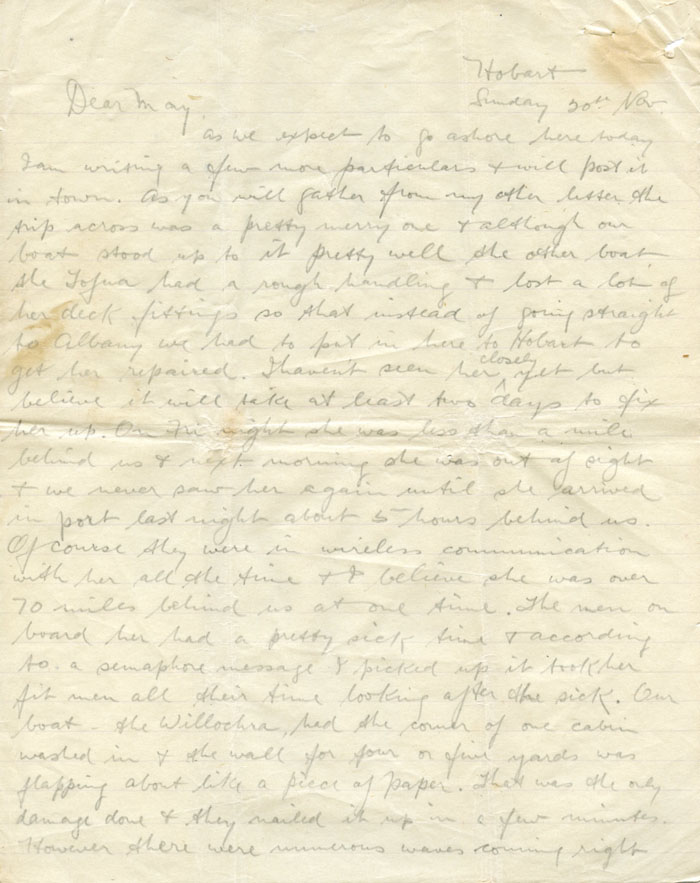 Hobart
Sunday 20th Nov.
Dear May,
As we expect to go ashore here today
I am writing a few more particulars & will post it
in town. As you will gather from my other letter the
trip across was a pretty merry one & although our
boat stood up to it pretty well the other boat
the Tofua had a rough handling & lost a lot of
her deck fittings so that instead of going straight
to Albany we had to put in here to Hobart to
get her repaired. I havent seen her closely yet but
believe it will take at least two days to fix
her up. On Fri night she was less than a mile
behind us & next morning she was out of sight
& we never saw her again until she arrived
in port last night about 5 hours behind us.
Of course they were in wireless communication
with her all the time & I believe she was over
70 miles behind us at one time. The men on
board her had a pretty sick time & according
to a semaphore message I picked up it took her
fit men all their time looking after the sick. Our
boat - the Willochra, had the corner of one cabin
washed in & the wall for four or five yards was
flapping about like a piece of paper. That was the only
damage done & they nailed it up in a few minutes.
However there were numerous waves coming right